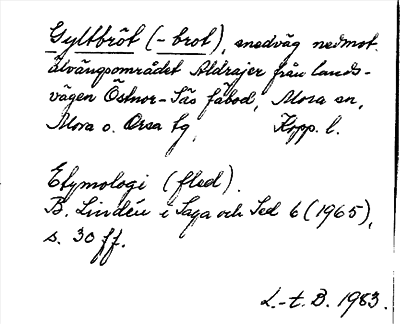 Gyltbröt (-brot), snedväg nedmot
älvängsområdet Aldrajer från lands-
vägen Östnor-Säs fäbod, Mora sn,
Mora o. Orsa tg, Kopp. l.
Etymologi (fled).
B. Lindén i Saga och Sed 6 (1965),
s. 30 ff.
L.-t. B. 1983.